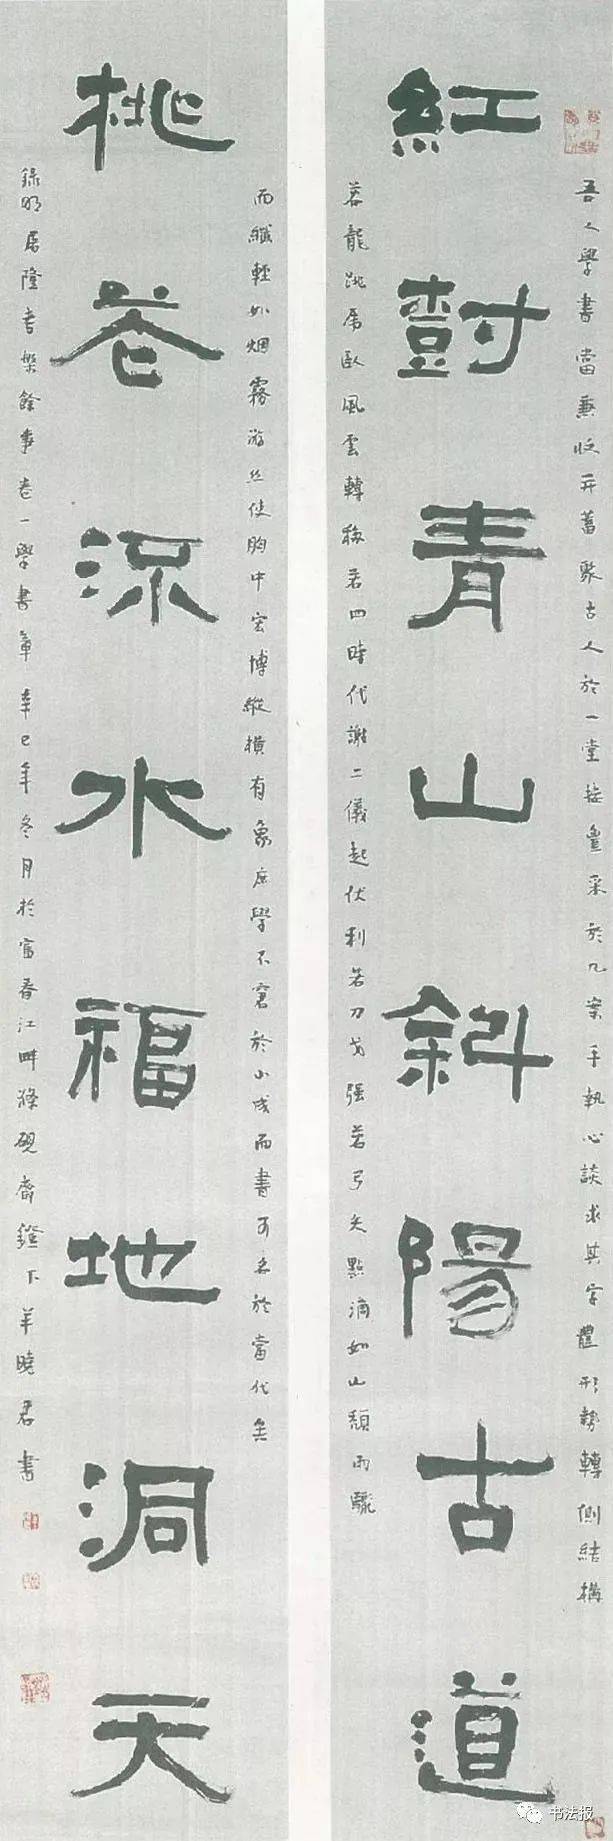 吾人學書當兼收并蓄聚古人於一堂接豐采於几案手執心談求其字體形勢轉側結構
紅樹青山斜陽古道
若龍跳虎臥風雲轉移若四時代謝二儀起伏利若刀戈强若弓矢點滴如山頹雨驟
而纖輕如烟霧游絲使胸中宏博縱橫有象庶學不窘於小成而書可名於當代矣
桃花流水福地洞天
錄明屠隆考槃餘事卷一學書章辛巳年冬月於富春江畔滌硯齋鐙下羊曉君書
书法报